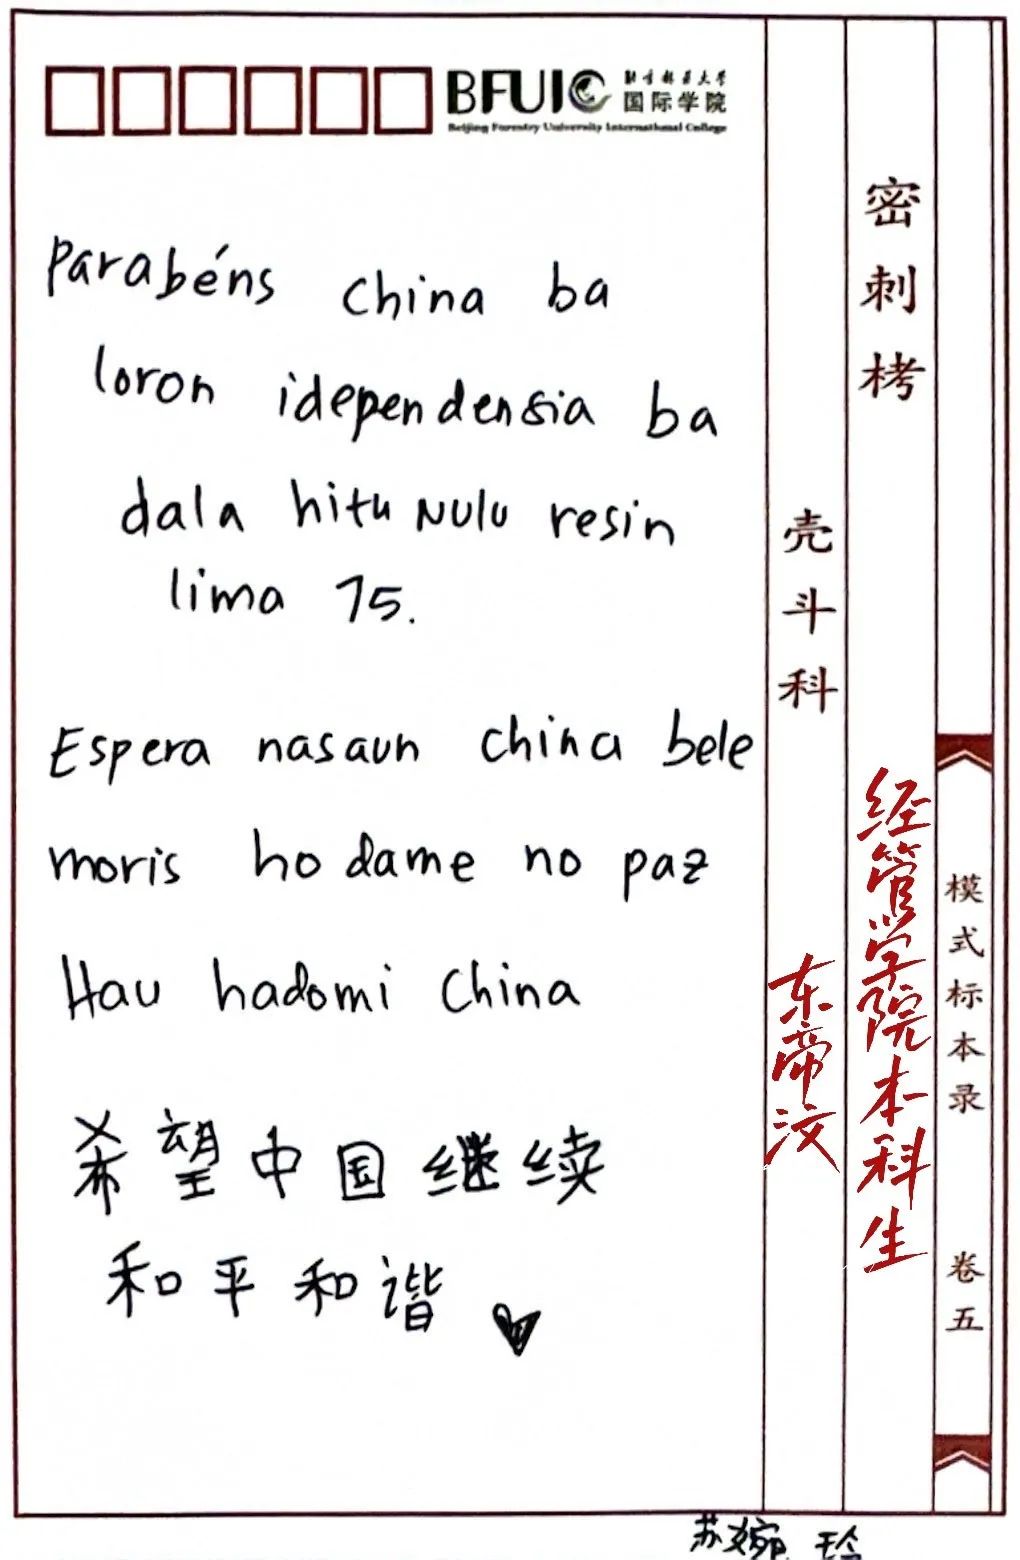 BFUIC
北京林业大学
国际学院
Beijing Forestry University International College
Parabéns china ba
loron idependensia ba
dala hitu Nulu resin
lima 75.
Espera nasaun china bele
moris ho dame no paz
Hau hadomi China
希望中国继续
和平和谐
密刺栲
壳斗科
经管学院本科生
东帝汶
模式标本录
卷五
苏婉玲